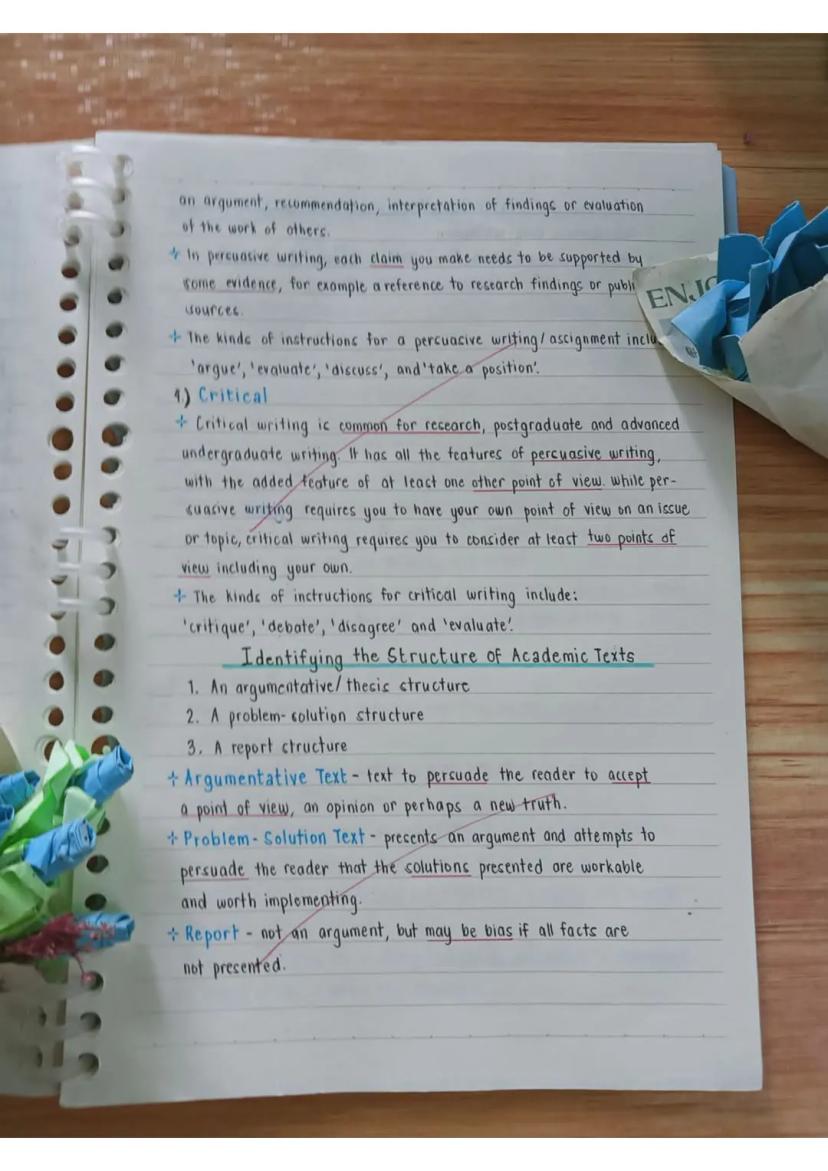 an argument, recommendation, interpretation of findings or evaluation
of the work of others.
+ In persuasive writing, each claim you make needs to be supported by
some evidence, for example a reference to research findings or publi
sources.
+ The kinds of instructions for a persuasive writing/assignment inclu
'argue', 'evaluate', 'discuss', and 'take a position'.
ENJO
4.) Critical
+ Critical writing is common for research, postgraduate and advanced
undergraduate writing. It has all the features of persuasive writing,
with the added feature of at least one other point of view. while per-
suasive writing requires you to have your own point of view on an issue
or topic, critical writing requires you to consider at least two points of
view including your own.
+ The kinds of instructions for critical writing include:
'critique', 'debate', 'disagree' and 'evaluate'.
Identifying the Structure of Academic Texts
1. An argumentative/thesis structure
2. A problem-solution structure
3. A report structure
+ Argumentative Text - text to persuade the reader to accept
a point of view, an opinion or perhaps a new truth.
+ Problem-Solution Text - presents an argument and attempts to
persuade the reader that the solutions presented are workable
and worth implementing.
+ Report - not an argument, but may be bias if all facts are
not presented.